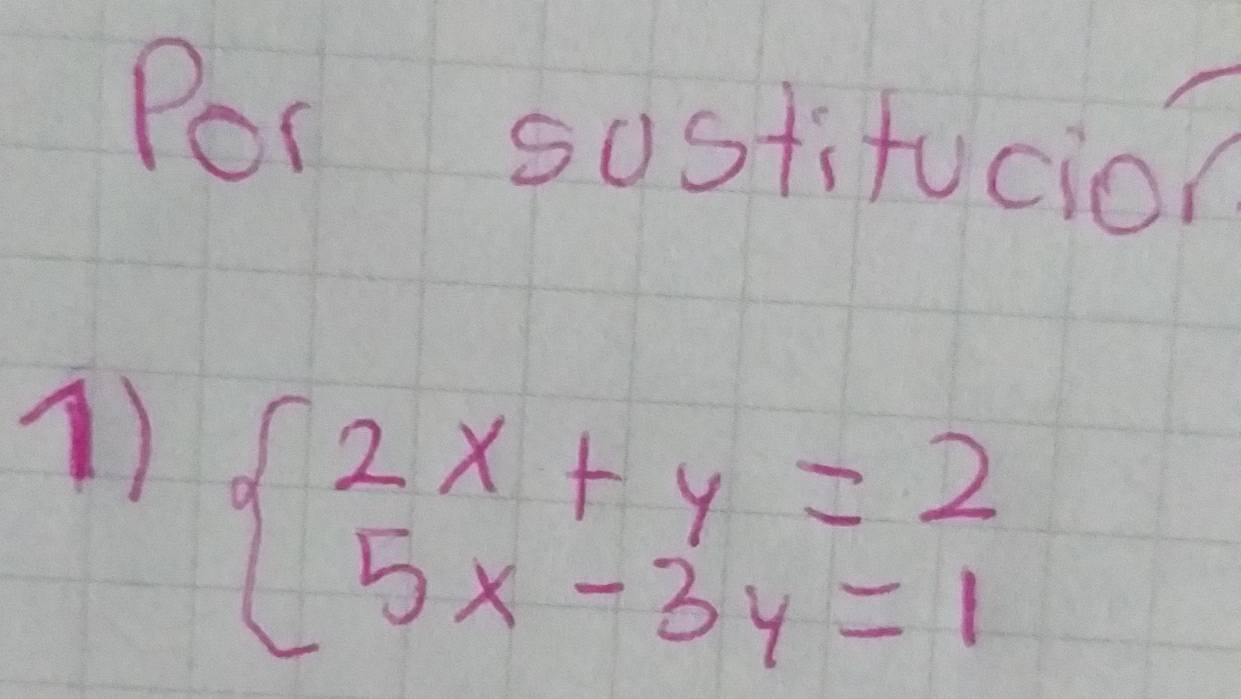 Por sustitución
1) { 2x + y = 2
5x - 3y = 1